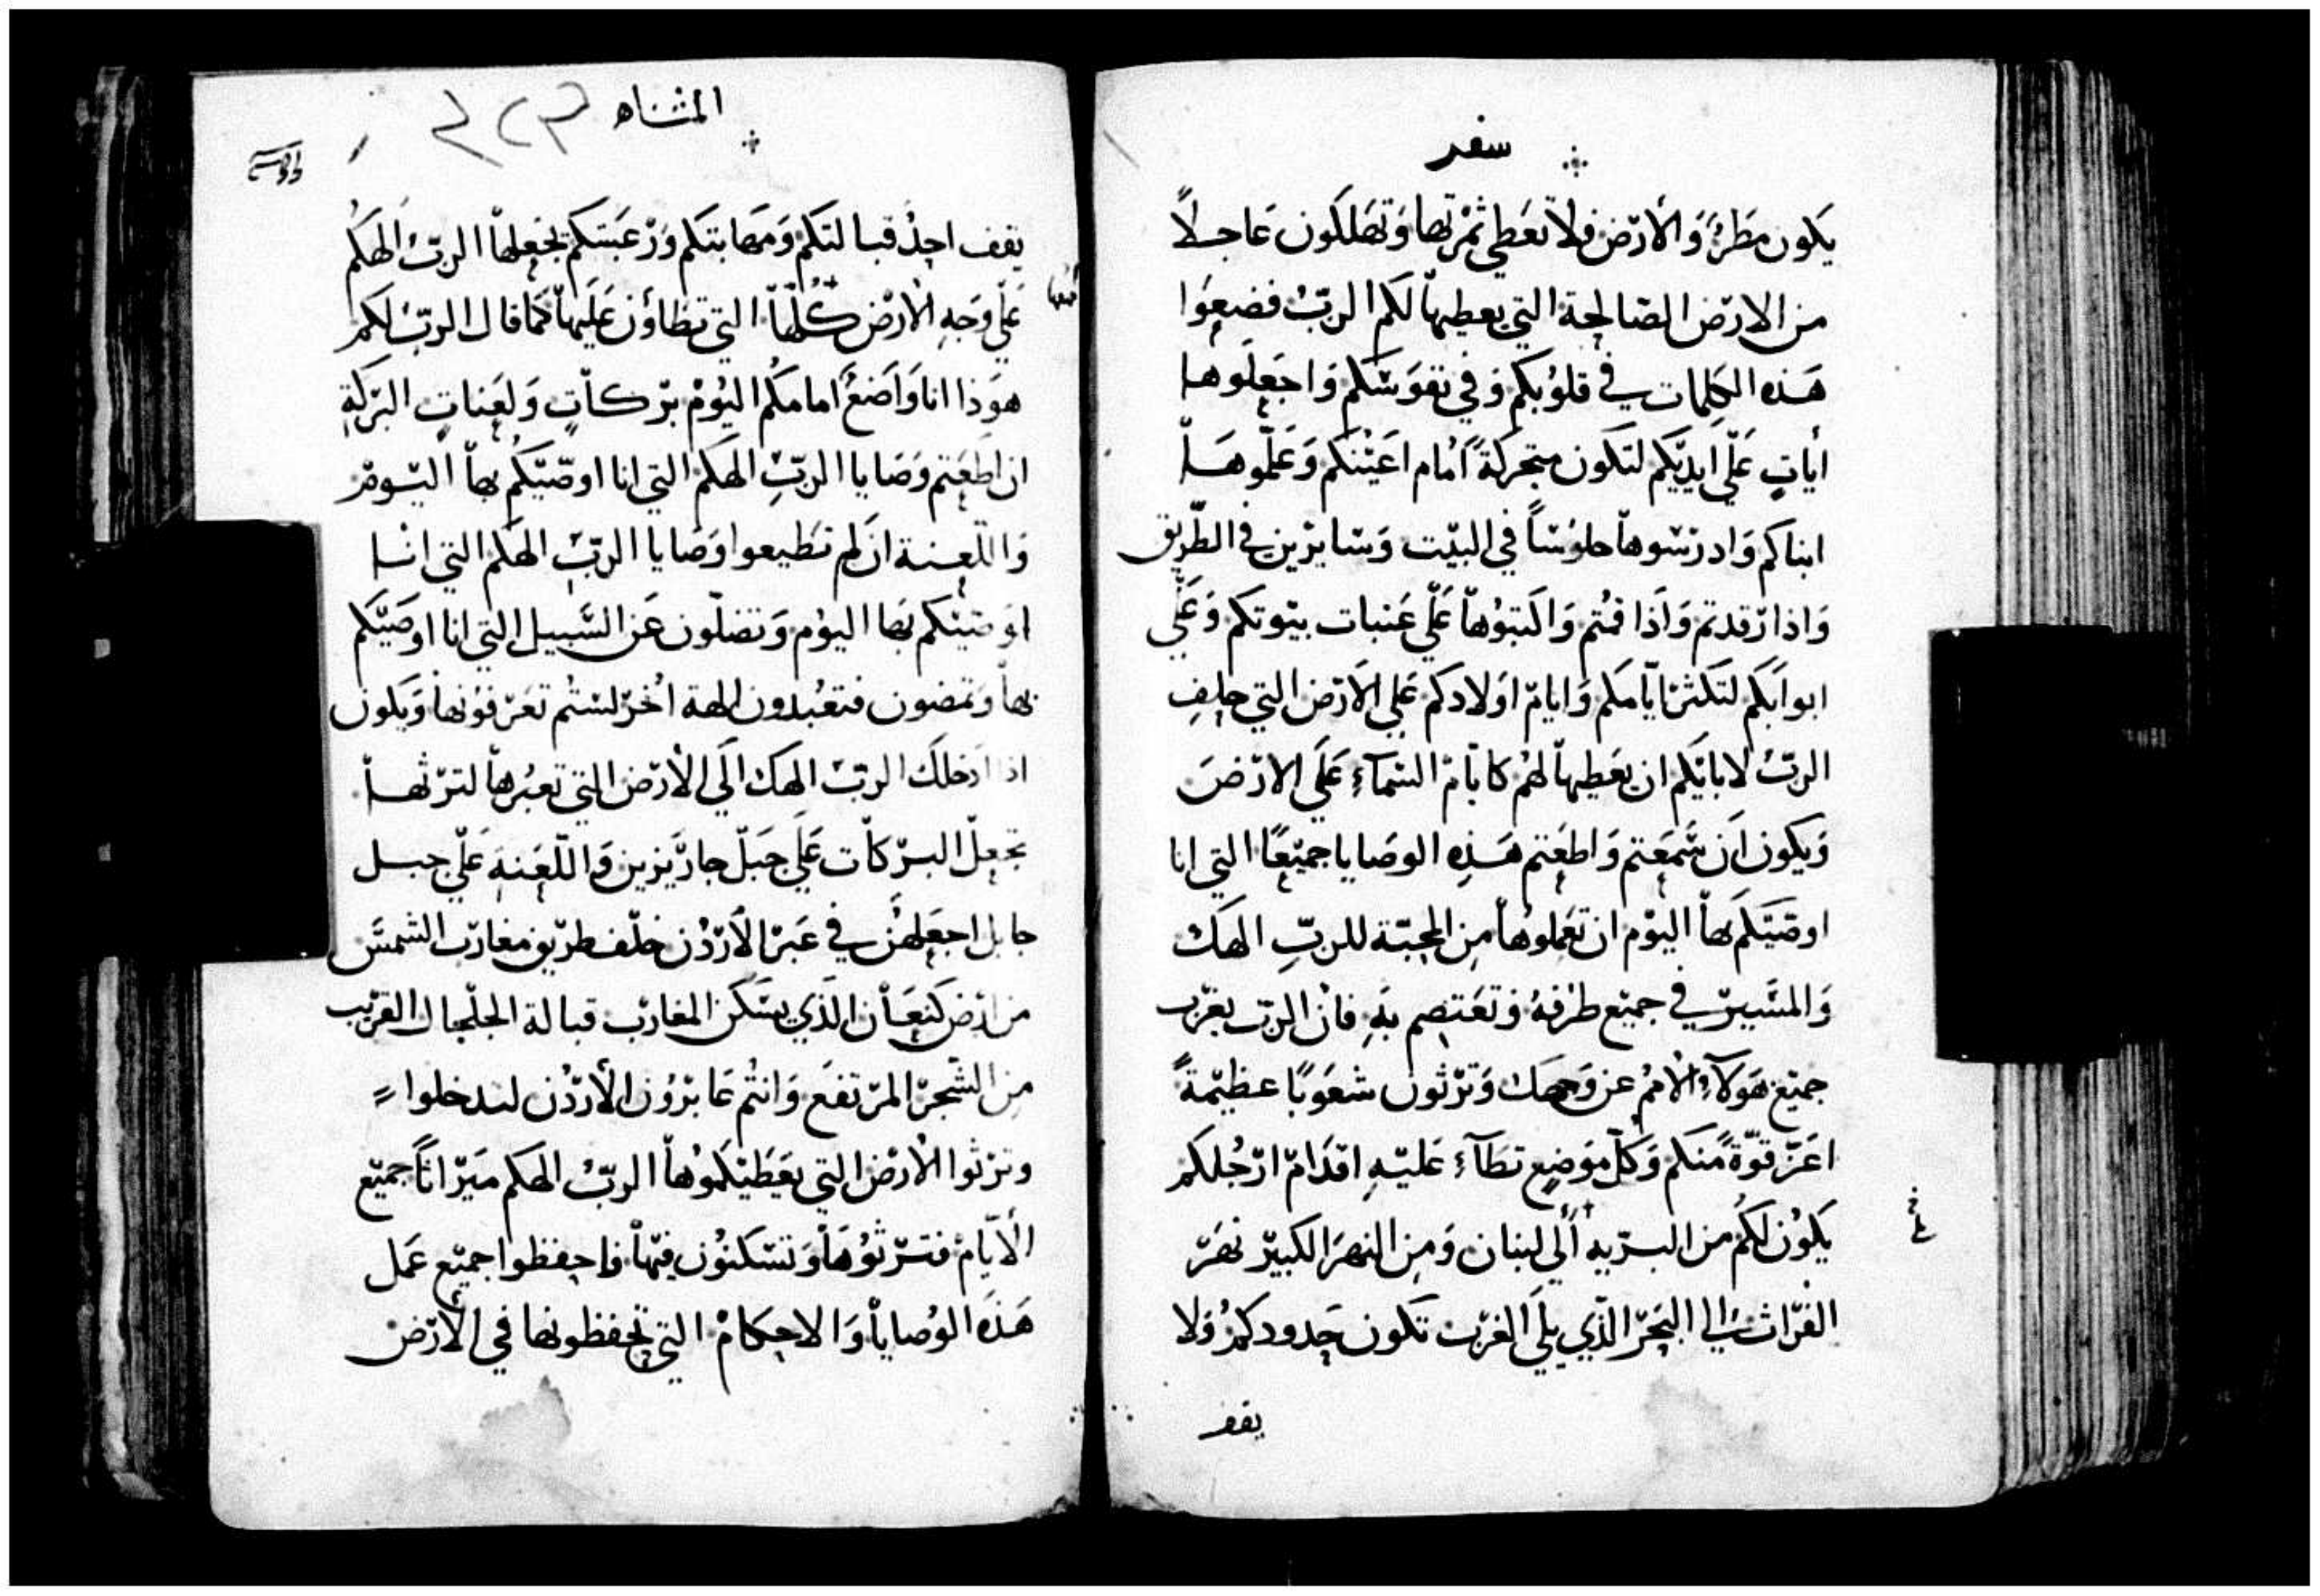 سفر
يكون مطرًا وَالأرْض فلا تعَطي ثمْرتها وَتهَلكون عَاجلاً
من الارْض الصّالحة التي يعطيهاْ لكم الربّ فضعوا
هَذه الكلمات في قلوُبكم وَفي نفوَسّكم وَاجعَلوها
أياتٍ عَلّي ايديّكم لتكون متحركةً أمَام اعَيْنكم وَعَلّموهَاْ
ابناكم وَادرسّوهاْ جلوُسّاً في البيْت وَسّايرْين في الطّريق
وَاذا رّقدتم وَاذا قمُتم وَاكتبوُهاْ عَلّي عَتبات بيْوتكم وَعَلّي
ابوابَكم لتكثر ايّامكم وَايامْ اوَلادكم عَلي الاَرْض التي حلفِ
الربّ لابايكم ان يعَطيهاْ لهم كايّام السّمآءِ عَلَي الارْض
وَيكون اَن سّمَعتم وَاطعَتم هَذِه الوصَايا جميْعًا التي انا
اوصّيَتكم بهاْ اليوْم ان تعَملوُهاْ مِن المحبّة للربِّ الهَك
وَالمسّيرْ في جميْع طرْقهُ وَتعَتصم بهِ فانْ الربّ يغرب
جميْع هَوَلآءِ الاممُ عن وَجهك وَترْثون شعَوبًا عظيْمةً
اعَزّ قوّةً منكم وَكلّ موَضِعٍ تطَآءِ عَليْهِ اقدَامْ ارْجُلكم
يكوُن لكُم من البرّيه إَلي لبنان وَمِن النهرَ الكبيرْ نهَرْ
الفرْات الي البَحرْ الذّي يلَي الغرْب تكون حَدودكمُ وَلا
يقف
المثناه
يقف احدٌ قبالتكم وَمهابتكم وَرْعَبتكم يجعلهاْ الربّ الهكمُ
عَلّي وَجهِ الاْرْض كُلّهاْ التي تطاوُن عَلَيهاْ كمَا قال الربّ لكم
هوَذا انا وَاضعٌ امامكُم اليوُمْ برْكاتٍ وَلعَناتٍ البرْكةِ
ان اطعَتم وَصَايا الربِّ الهكم التي انا اوصّيّكم بهاْ اليْومْ
وَاللّعنة ان لم تطيعوا وَصَايا الربّ الهَكم التي انا
اوَصّيْكم بها اليوْم وَتضلّون عَن السّبيل التي انا اوصَيّكم
بهاْ وَتمضون فتعُبدون الهة اُخرْ لسّتُم تعَرْفوُنهاْ وَيكون
اذا ادَخلك الربّ الهك الَي الأرْض التي تعبُرهاْ لترْثهاْ
تجعلّ البرْكاْت عَلَي جَبلّ جارَّيزين وَاللّعَنةِ عَلّي جبل
جابل اجعَلهُنْ في عَبرْ الأرْدُن خلّف طرْيق مغارْب الشمسّ
من ارْض كنعَاْن الّذَي يسّكن المغارْب قبالة الجلّجال القرْيب
مِن الشّجرْ المرْتفعَ وَانتُم عَابرْوُن الأرْدُن لتدخلوا
وترْثوا الاُرْض التي يعَطيْكموُهاْ الربّ الهكم ميَرْاثاً جميْع
الأيّامْ فترْثوُهَاْ وَتسّكنوُن فيْهاْ فاحفظوا جميْع عَمل
هَذه الوُصاياْ وَالاحكامْ التي تحفظونها في الأرْض